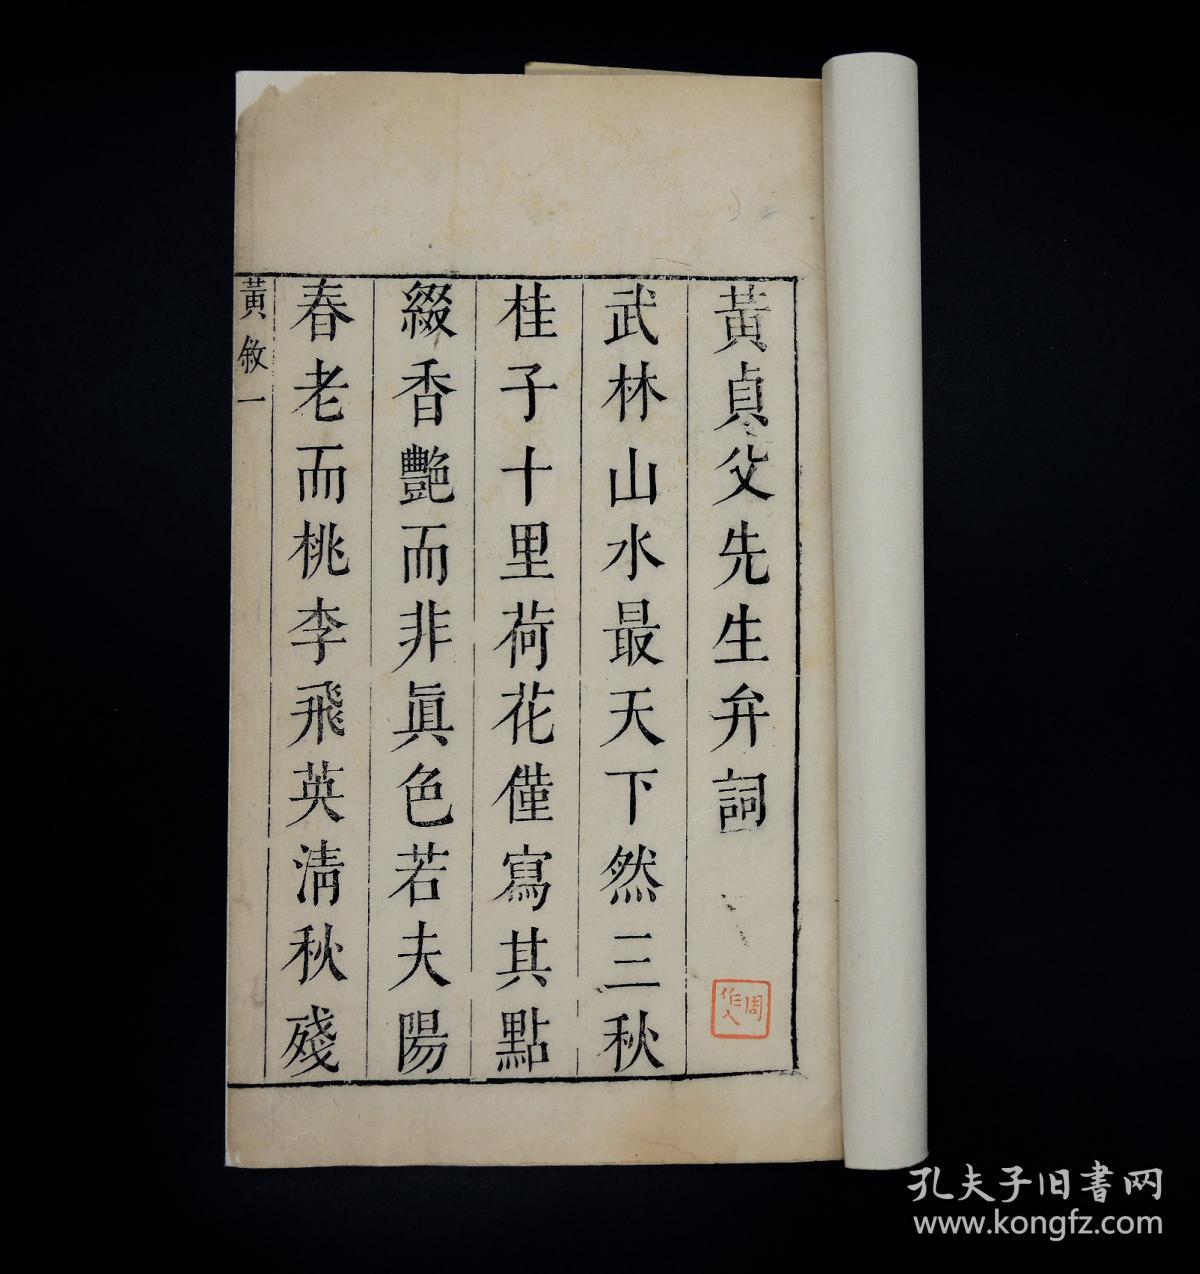 黃貞父先生弁詞
武林山水最天下然三秋
桂子十里荷花僅寫其點
綴香艷而非眞色若夫陽
春老而桃李飛英清秋殘
黃敘一
周作人
孔夫子旧書网
www.kongfz.com